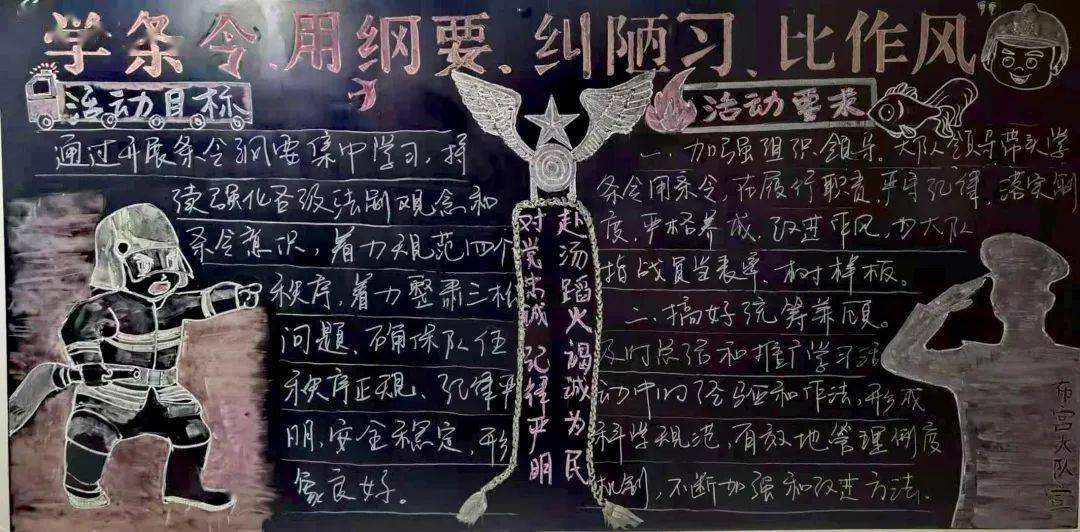 学条令、用纲要、纠陋习、比作风
活动目标
通过开展条令纲要集中学习，持
续强化各级法制观念和
条令意识，着力规范四个
秩序，着力整肃三松
问题，确保队伍
秩序正规、纪律严
明，安全稳定，形
象良好。
赴汤蹈火 竭诚为民
对党忠诚 纪律严明
活动要求
一、加强组织领导。大队领导带头学
条令用条令，在履行职责，严守纪律，落实制
度，严格养成，改进作风，为大队
指战员当表率、树样板。
二、搞好统筹兼顾。
及时总结和推广学习活
动中的经验和作法，形成
科学规范，有效地管理制度
机制，不断加强和改进方法.
布宫大队宣